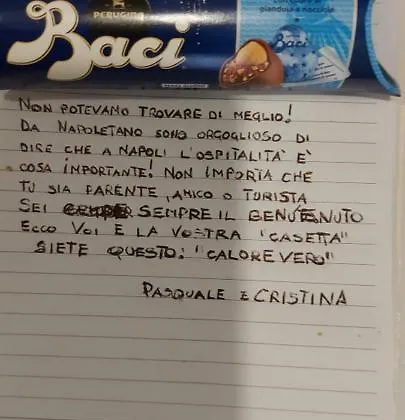 PERUGINA
Baci
gianduia e nocciole
Baci
NON POTEVAMO TROVARE DI MEGLIO!
DA NAPOLETANO SONO ORGOGLIOSO DI
DIRE CHE A NAPOLI L'OSPITALITÀ È
COSA IMPORTANTE! NON IMPORTA CHE
TU SIA PARENTE, AMICO O TURISTA
SEI SEMPRE IL BENVENUTO
ECCO VOI E LA VOSTRA "CASETTA"
SIETE QUESTO: "CALORE VERO"
PASQUALE E CRISTINA